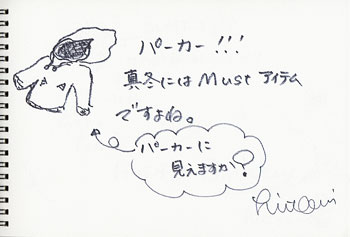 パーカー!!!
真冬には Must アイテム
ですよね。
パーカーに
見えますか?